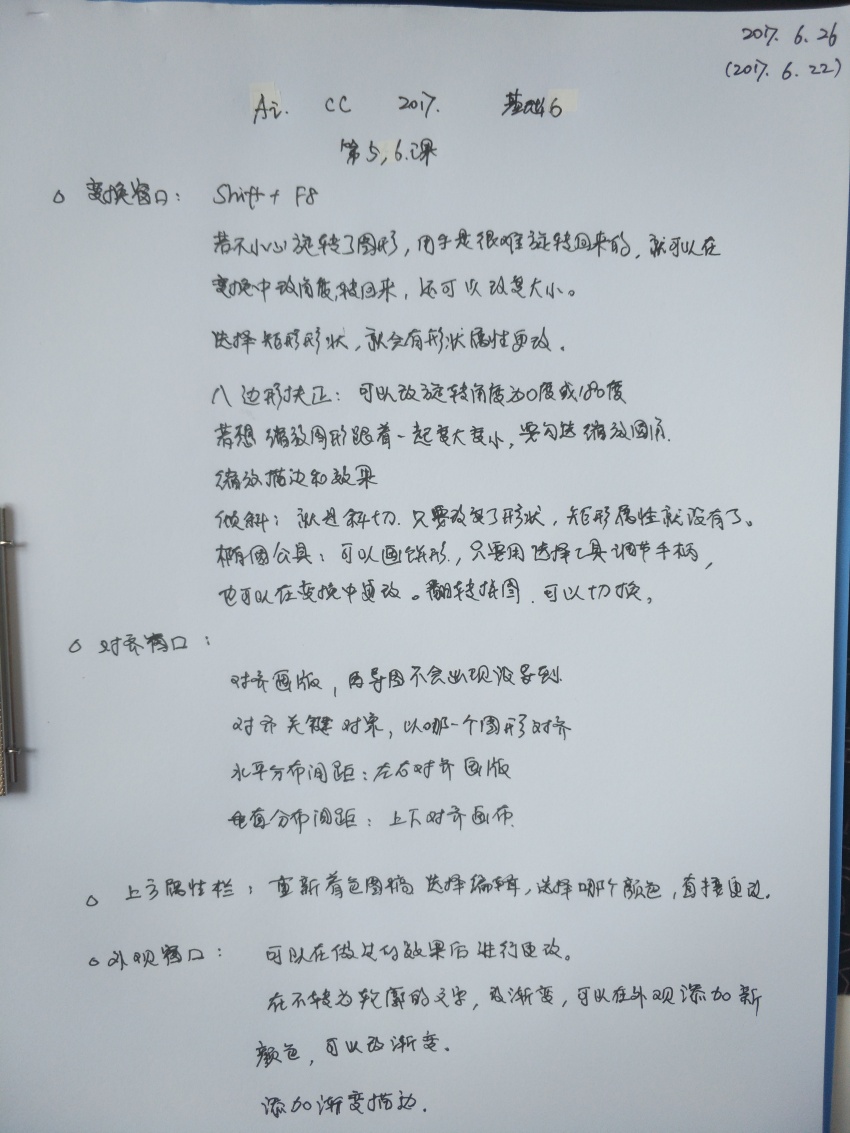 2017. 6. 26
(2017. 6. 22)
Ai. CC 2017. 基础6
第5,6.课
变换窗口: Shift + F8
若不小心旋转了图形,用手是很难旋转回来的,就可以在
变换中改角度,转回来,还可以改变大小。
选择矩形形状,就会有形状属性更改.
八边形扶正:可以改旋转角度为0度或180度
若想缩放图形跟着一起变大变小,要勾选缩放圆角.
缩放描边和效果
倾斜:就是斜切.只要改变了形状,矩形属性就没有了。
椭圆工具:可以画饼形.,只要用选择工具调节手柄,
也可以在变换中更改。翻转拼图.可以切换,
对齐窗口:
对齐画版,因导图不会出现没导到.
对齐关键对象,以哪一个图形对齐
水平分布间距:左右对齐画版
垂直分布间距:上下对齐画布.
上方属性栏:重新着色图稿选择编辑,选择哪个颜色,直接更改.
外观窗口:可以在做过的效果后进行更改。
在不转为轮廓的文字,改渐变,可以在外观添加新
颜色,可以改渐变.
添加渐变描边.